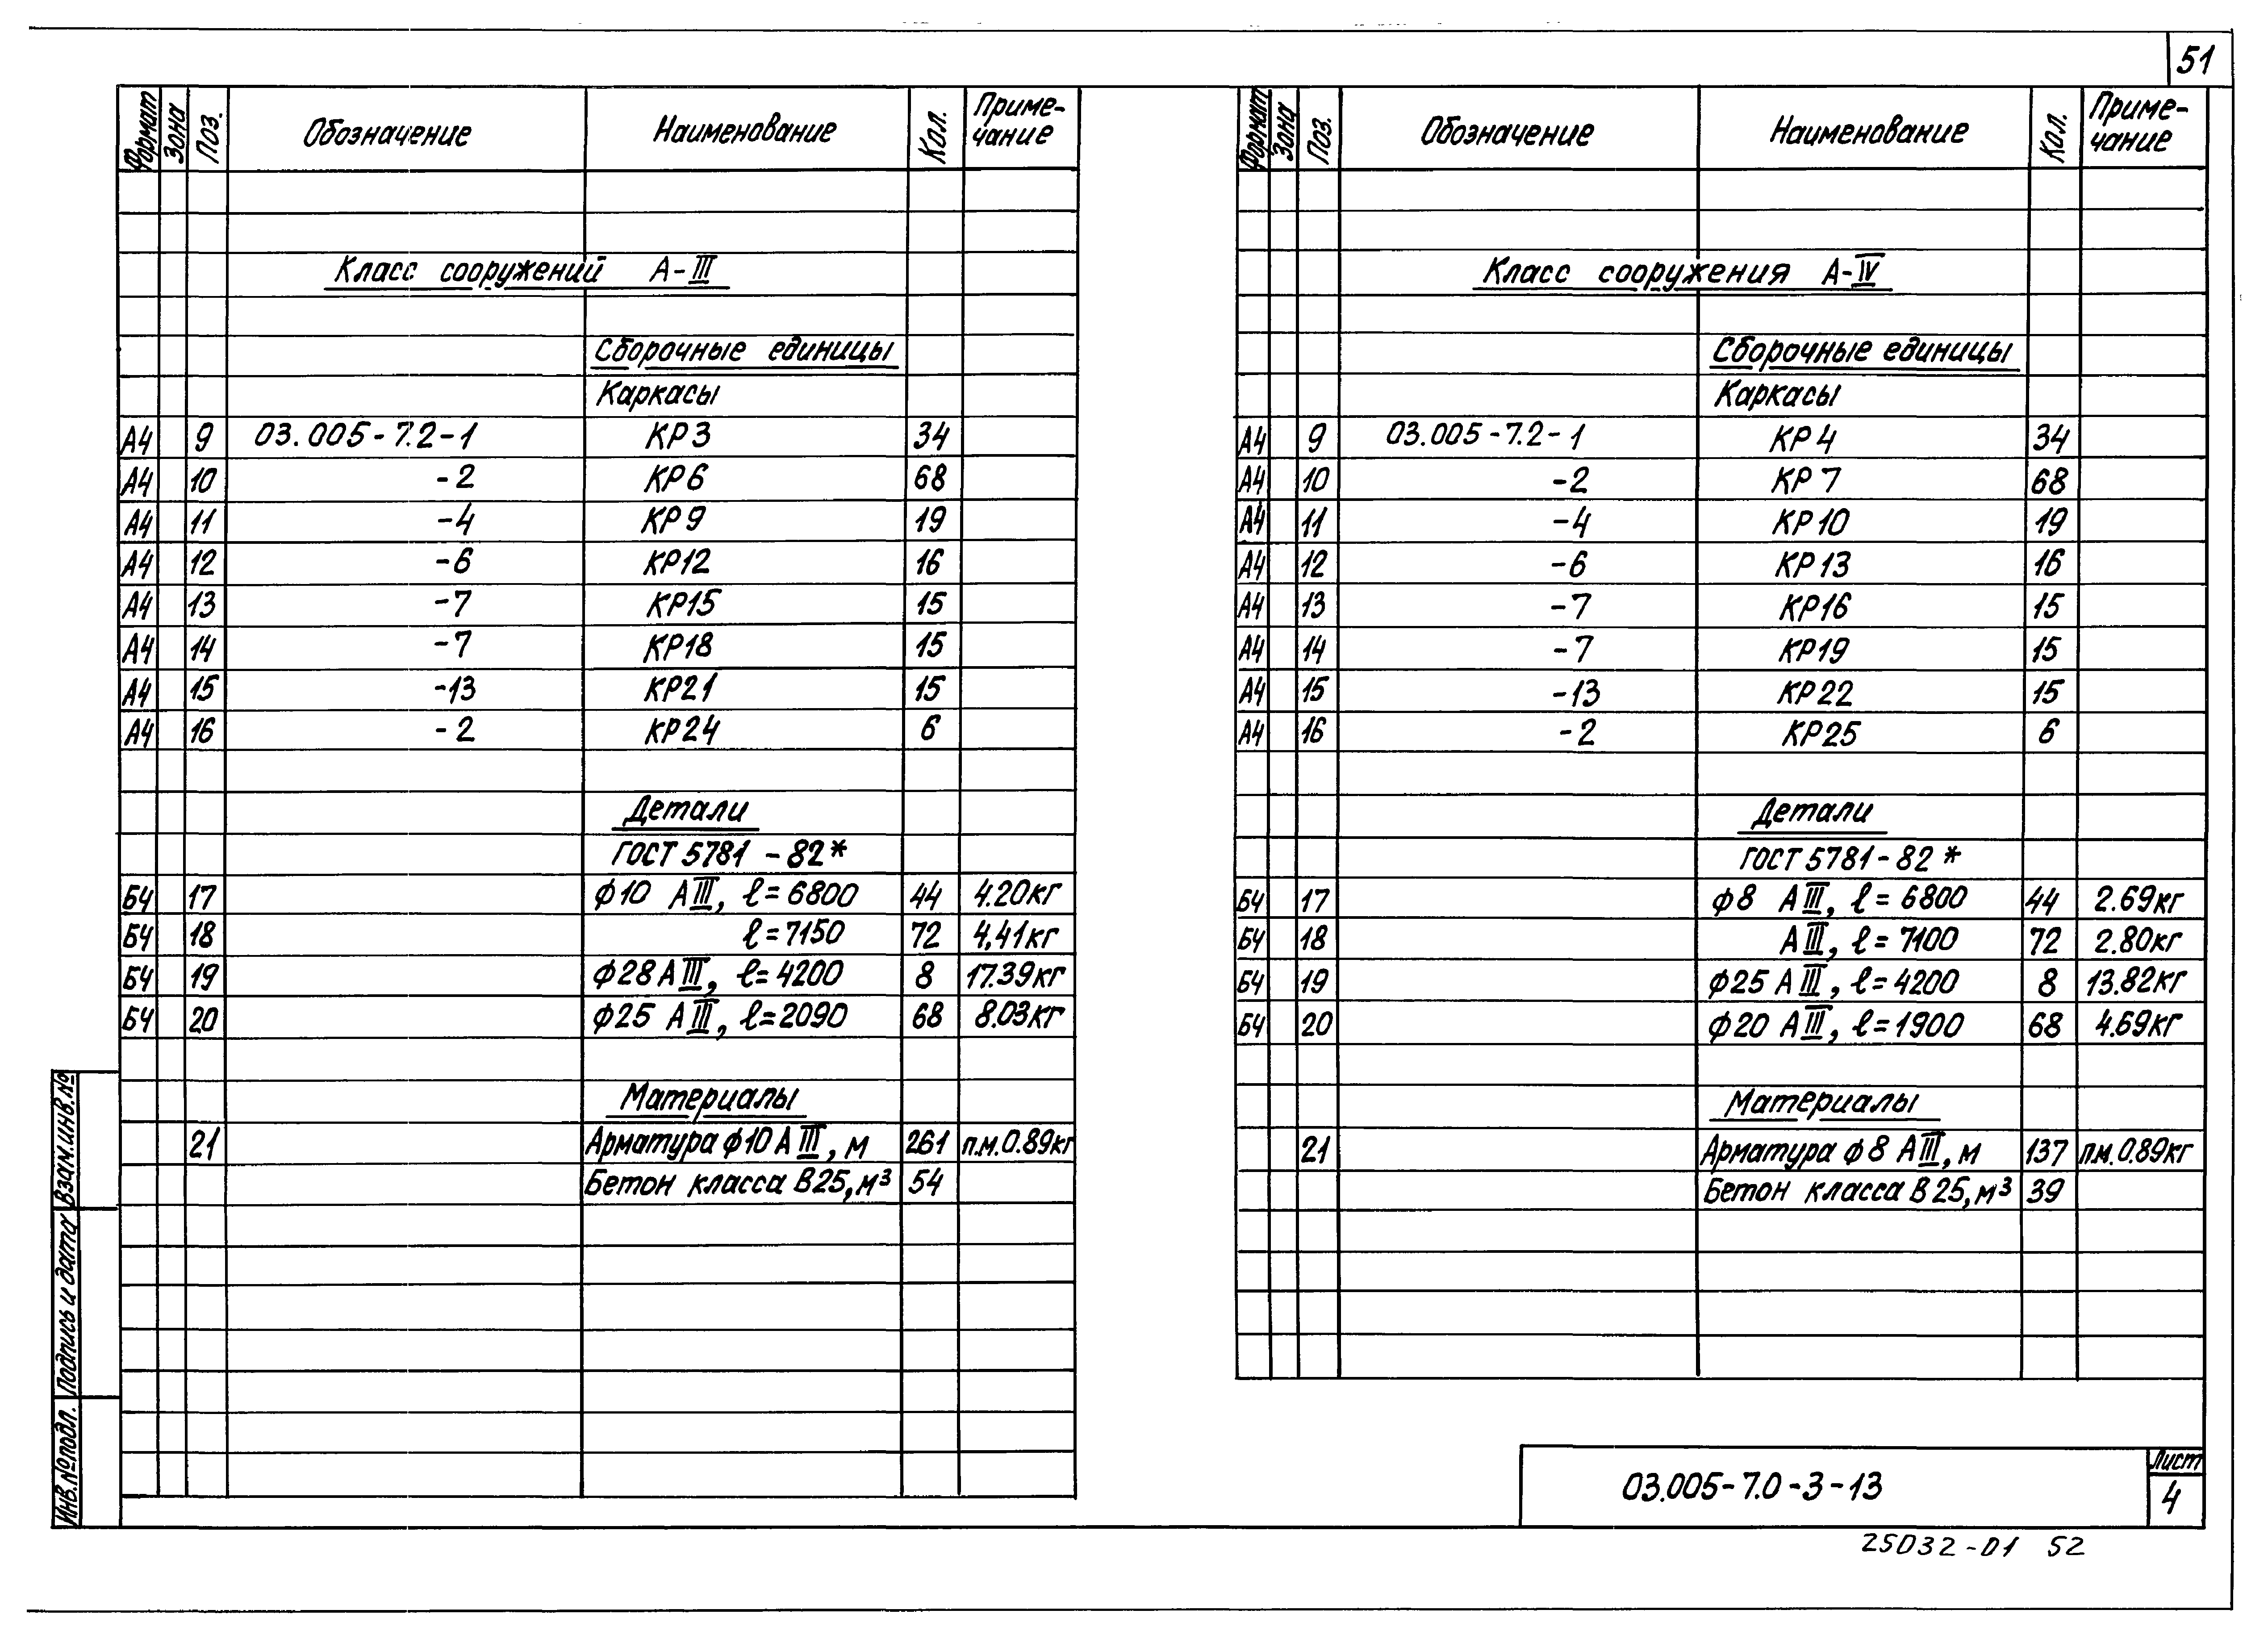 51
Формат Зона Поз. Обозначение Наименование Кол. Приме-
чание
Класс сооружений А-III
Сборочные единицы
Каркасы
А4 9 03.005-7.2-1 КР3 34
А4 10 -2 КР6 68
А4 11 -4 КР9 19
А4 12 -6 КР12 16
А4 13 -7 КР15 15
А4 14 -7 КР18 15
А4 15 -13 КР21 15
А4 16 -2 КР24 6
Детали
ГОСТ 5781-82*
БЧ 17 ф10 АIII, ℓ=6800 44 4.20кг
БЧ 18 ℓ=7150 72 4,41кг
БЧ 19 ф28 АIII, ℓ=4200 8 17.39кг
БЧ 20 ф25 АIII, ℓ=2090 68 8.03кг
Материалы
21 Арматура ф10 АIII, м 261 п.м. 0.89кг
Бетон класса В25, м³ 54
Формат Зона Поз. Обозначение Наименование Кол. Приме-
чание
Класс сооружения А-IV
Сборочные единицы
Каркасы
А4 9 03.005-7.2-1 КР4 34
А4 10 -2 КР7 68
А4 11 -4 КР10 19
А4 12 -6 КР13 16
А4 13 -7 КР16 15
А4 14 -7 КР19 15
А4 15 -13 КР22 15
А4 16 -2 КР25 6
Детали
ГОСТ 5781-82*
БЧ 17 ф8 АIII, ℓ=6800 44 2.69кг
БЧ 18 АIII, ℓ=7100 72 2.80кг
БЧ 19 ф25 АIII, ℓ=4200 8 13.82кг
БЧ 20 ф20 АIII, ℓ=1900 68 4.69кг
Материалы
21 Арматура ф8 АIII, м 137 п.м. 0.89кг
Бетон класса В25, м³ 39
Взам.инв.№
Подпись и дата
Инв.№подл.
03.005-7.0-3-13
Лист
4
25032-01 52